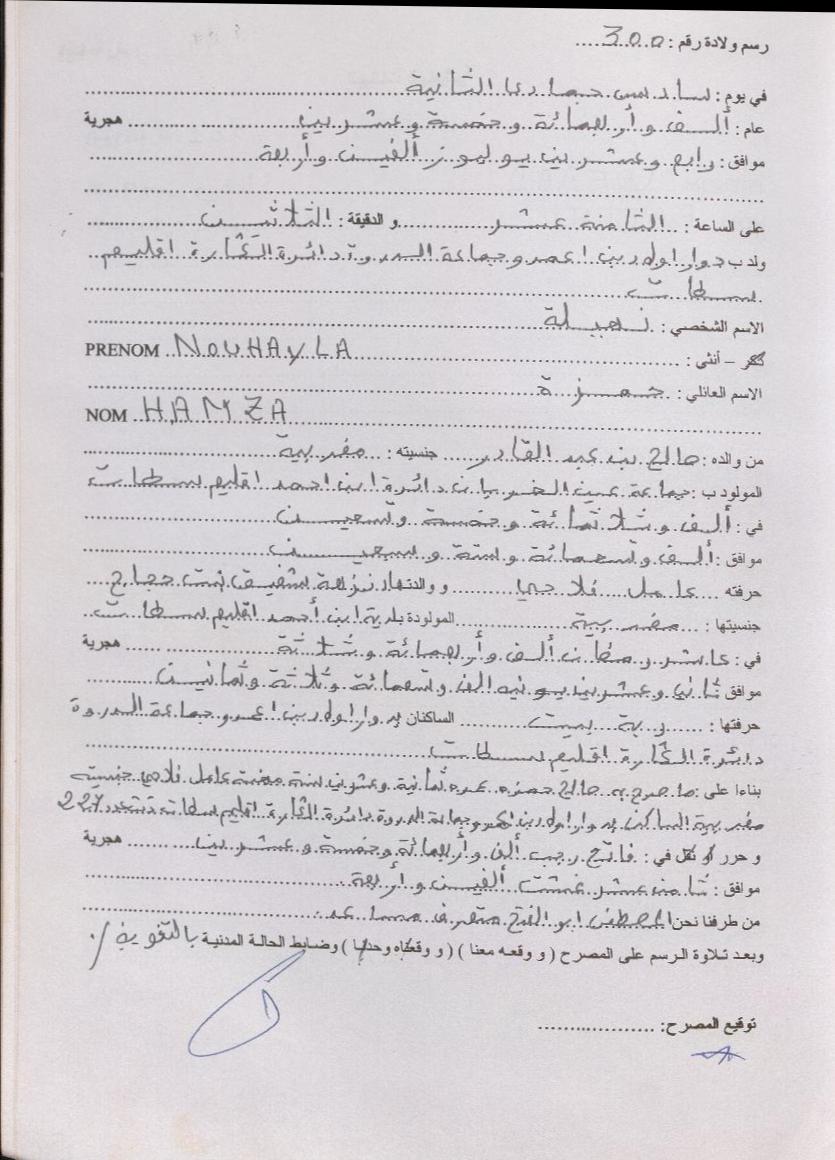 رسم ولادة رقم : 300
في يوم : سادس جمادى الثانية
عام : ألف وأربعمائة وخمسة وعشرين هجرية
موافق : رابع وعشرين يوليوز ألفين وأربعة
على الساعة : الثامنة عشر و الدقيقة : الثلاثين
ولد ب دوار اولاد بن اعمر وجماعة الدروة دائرة الكارة اقليم
سطات
الاسم الشخصي : نهيلة
ذكر – أنثى : PRENOM NOUHAYLA
الاسم العائلي : حمزة
NOM HAMZA
من والده : صالح بن عبد القادر جنسيته : مغربية
المولود ب : جماعة عين الضربان دائرة ابن احمد اقليم سطات
في : ألف وثلاثمائة وخمسة وتسعين
موافق : ألف وتسعمائة وستة وسبعين
حرفته عامل فلاحي و والدتها نزهة شفيق بنت حجاج
جنسيتها : مغربية المولودة بلدية ابن أحمد اقليم سطات
في : عاشر رمضان ألف وأربعمائة وثلاثة هجرية
موافق ثاني وعشرين يونيه الف وتسعمائة وثلاثة وثمانين
حرفتها : ربة بيت الساكنان بدوار اولاد بن اعمر وجماعة الدروة
دائرة الكارة اقليم سطات
بناءا على : ما صرح به صالح حمزة عمره ثمانية وعشرون سنة مهنته عامل فلاحي جنسيته
مغربية الساكن بدوار اولاد بن اعمر وجماعة الدروة دائرة الكارة اقليم سطات 227
و حرر أو نقل في : فاتح رجب ألف وأربعمائة وخمسة وعشرين هجرية
موافق : ثامن عشر غشت ألفين وأربعة
من طرفنا نحن المصطفى ابو الفتح متصرف مساعد
وبعد تلاوة الرسم على المصرح ( و وقعه معنا ) ( و وقعناه وحدنا ) وضابط الحالة المدنية بالتفويض
توقيع المصرح :